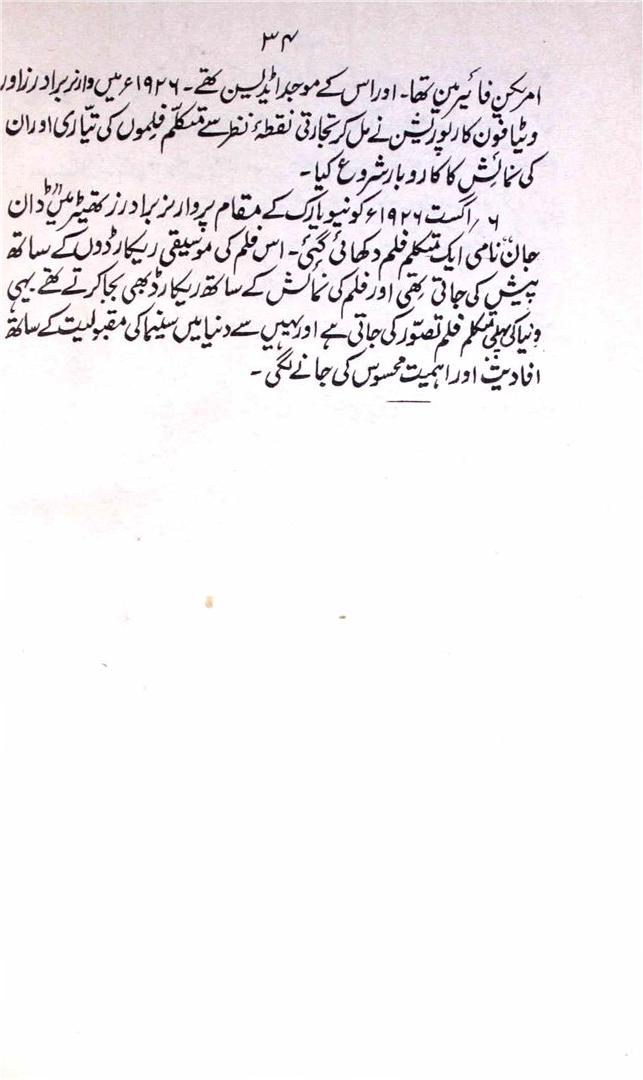 ۳۴
امریکن فائیرمین تھا۔ اور اس کے موجد اڈیسن تھے۔ ۱۹۲۶ء میں وارنر برادرز اور
وٹیافون کارپوریشن نے مل کر تجارتی نقطۂ نظر سے متکلّم فلموں کی تیّاری اور ان
کی نمائش کا کاروبار شروع کیا۔
۶ / اگست ۱۹۲۶ء کو نیویارک کے مقام پر وارنر برادرز تھیٹر میں "ڈان
جان" نامی ایک متکلم فلم دکھائی گئی۔ اس فلم کی موسیقی ریکارڈوں کے ساتھ
پیش کی جاتی تھی اور فلم کی نمائش کے ساتھ ریکارڈ بھی بجا کرتے تھے یہی
دنیا کی پہلی متکلم فلم تصوّر کی جاتی ہے اور یہیں سے دنیا میں سنیما کی مقبولیت کے ساتھ
افادیت اور اہمیت محسوس کی جانے لگی۔